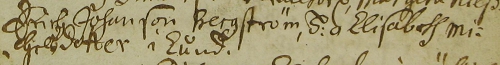 Johansson Bergström, S: a Elisabeth Mi=
chelsdotter i Lund.